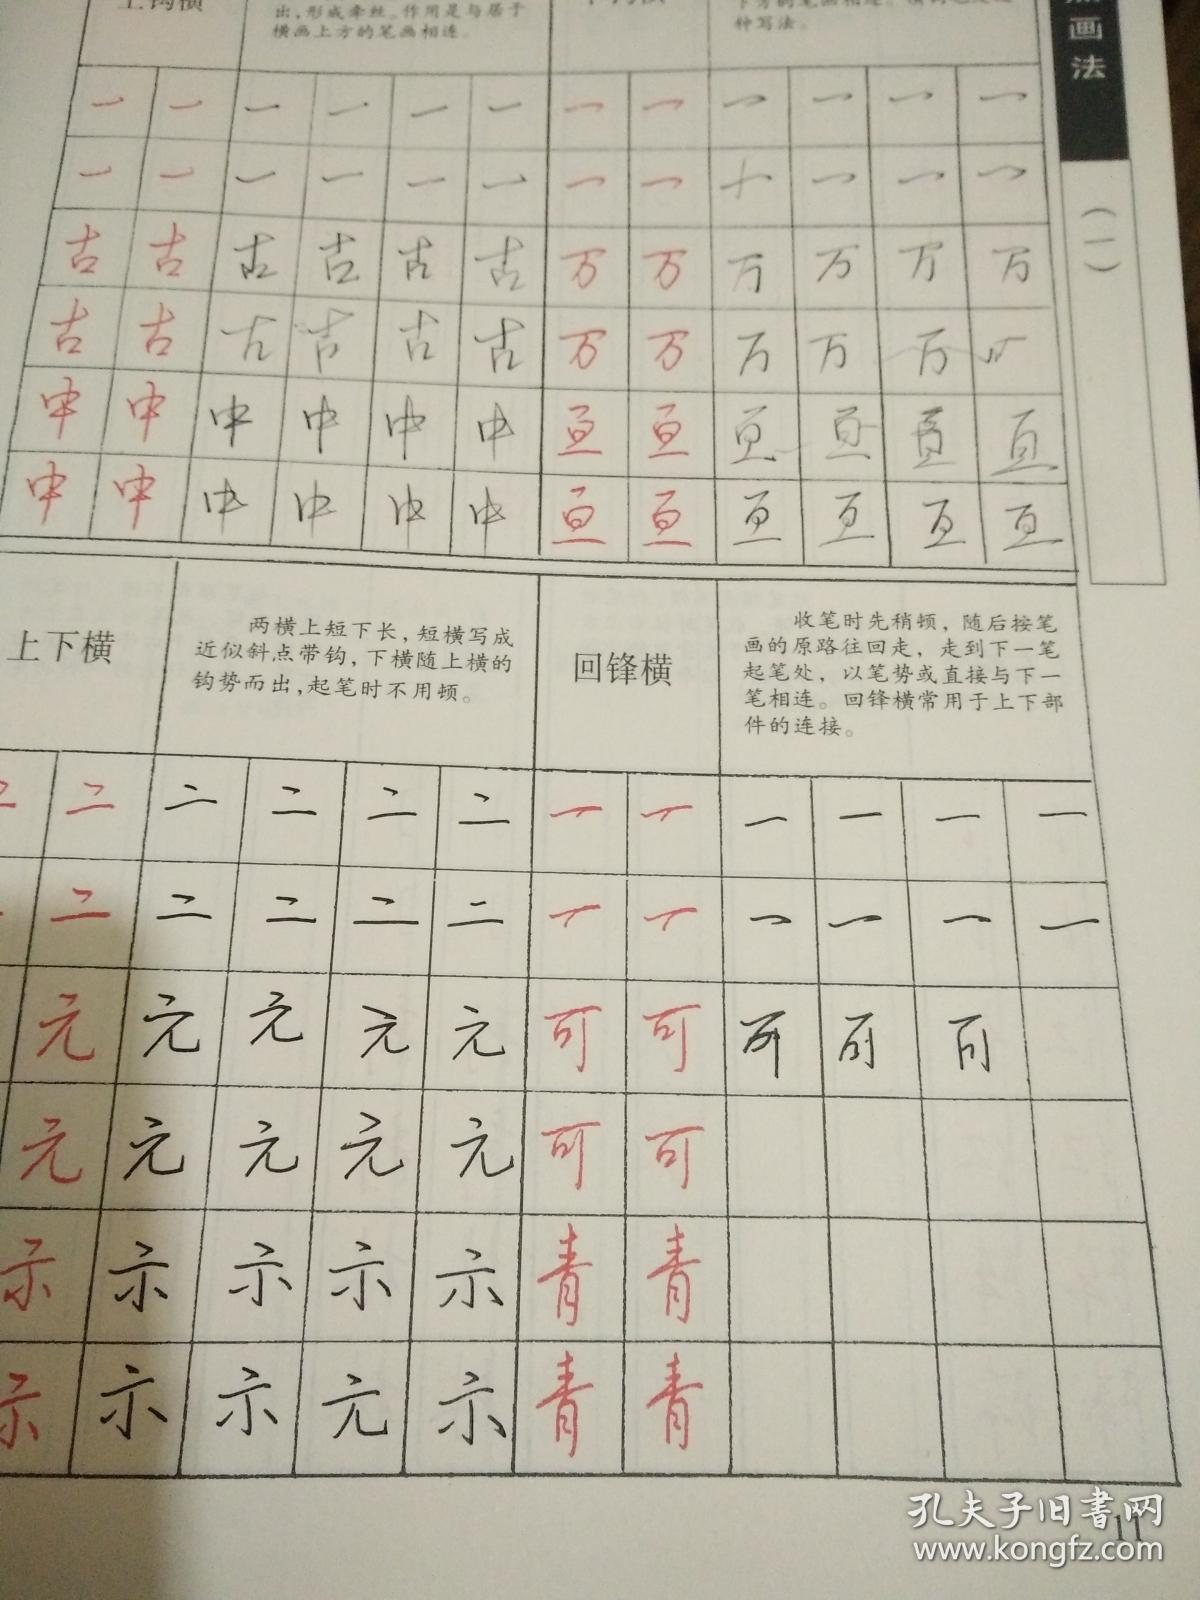 上钩横
出，形成牵丝。作用是与居于
横画上方的笔画相连。
种写法。
画法
（一）
一 一 一 一 一 一 一 一 一 一 一 一
一 一 一 一 一 一 一 一 十 一 一 一
古 古 古 古 古 古 万 万 万 万 万 万
古 古 古 古 古 古 万 万 万 万 万
中 中 中 中 中 中 亘 亘 亘 亘 亘 亘
中 中 中 中 中 中 亘 亘 亘 亘 亘 亘
上下横
两横上短下长，短横写成
近似斜点带钩，下横随上横的
钩势而出，起笔时不用顿。
回锋横
收笔时先稍顿，随后按笔
画的原路往回走，走到下一笔
起笔处，以笔势或直接与下一
笔相连。回锋横常用于上下部
件的连接。
二 二 二 二 二 二 一 一 一 一 一 一
二 二 二 二 二 一 一 一 一 一 一
元 元 元 元 元 可 可 可 可 可
元 元 元 元 元 可 可
示 示 示 示 示 青 青
示 示 示 元 示 青 青
孔夫子旧书网
www.kongfz.com
11